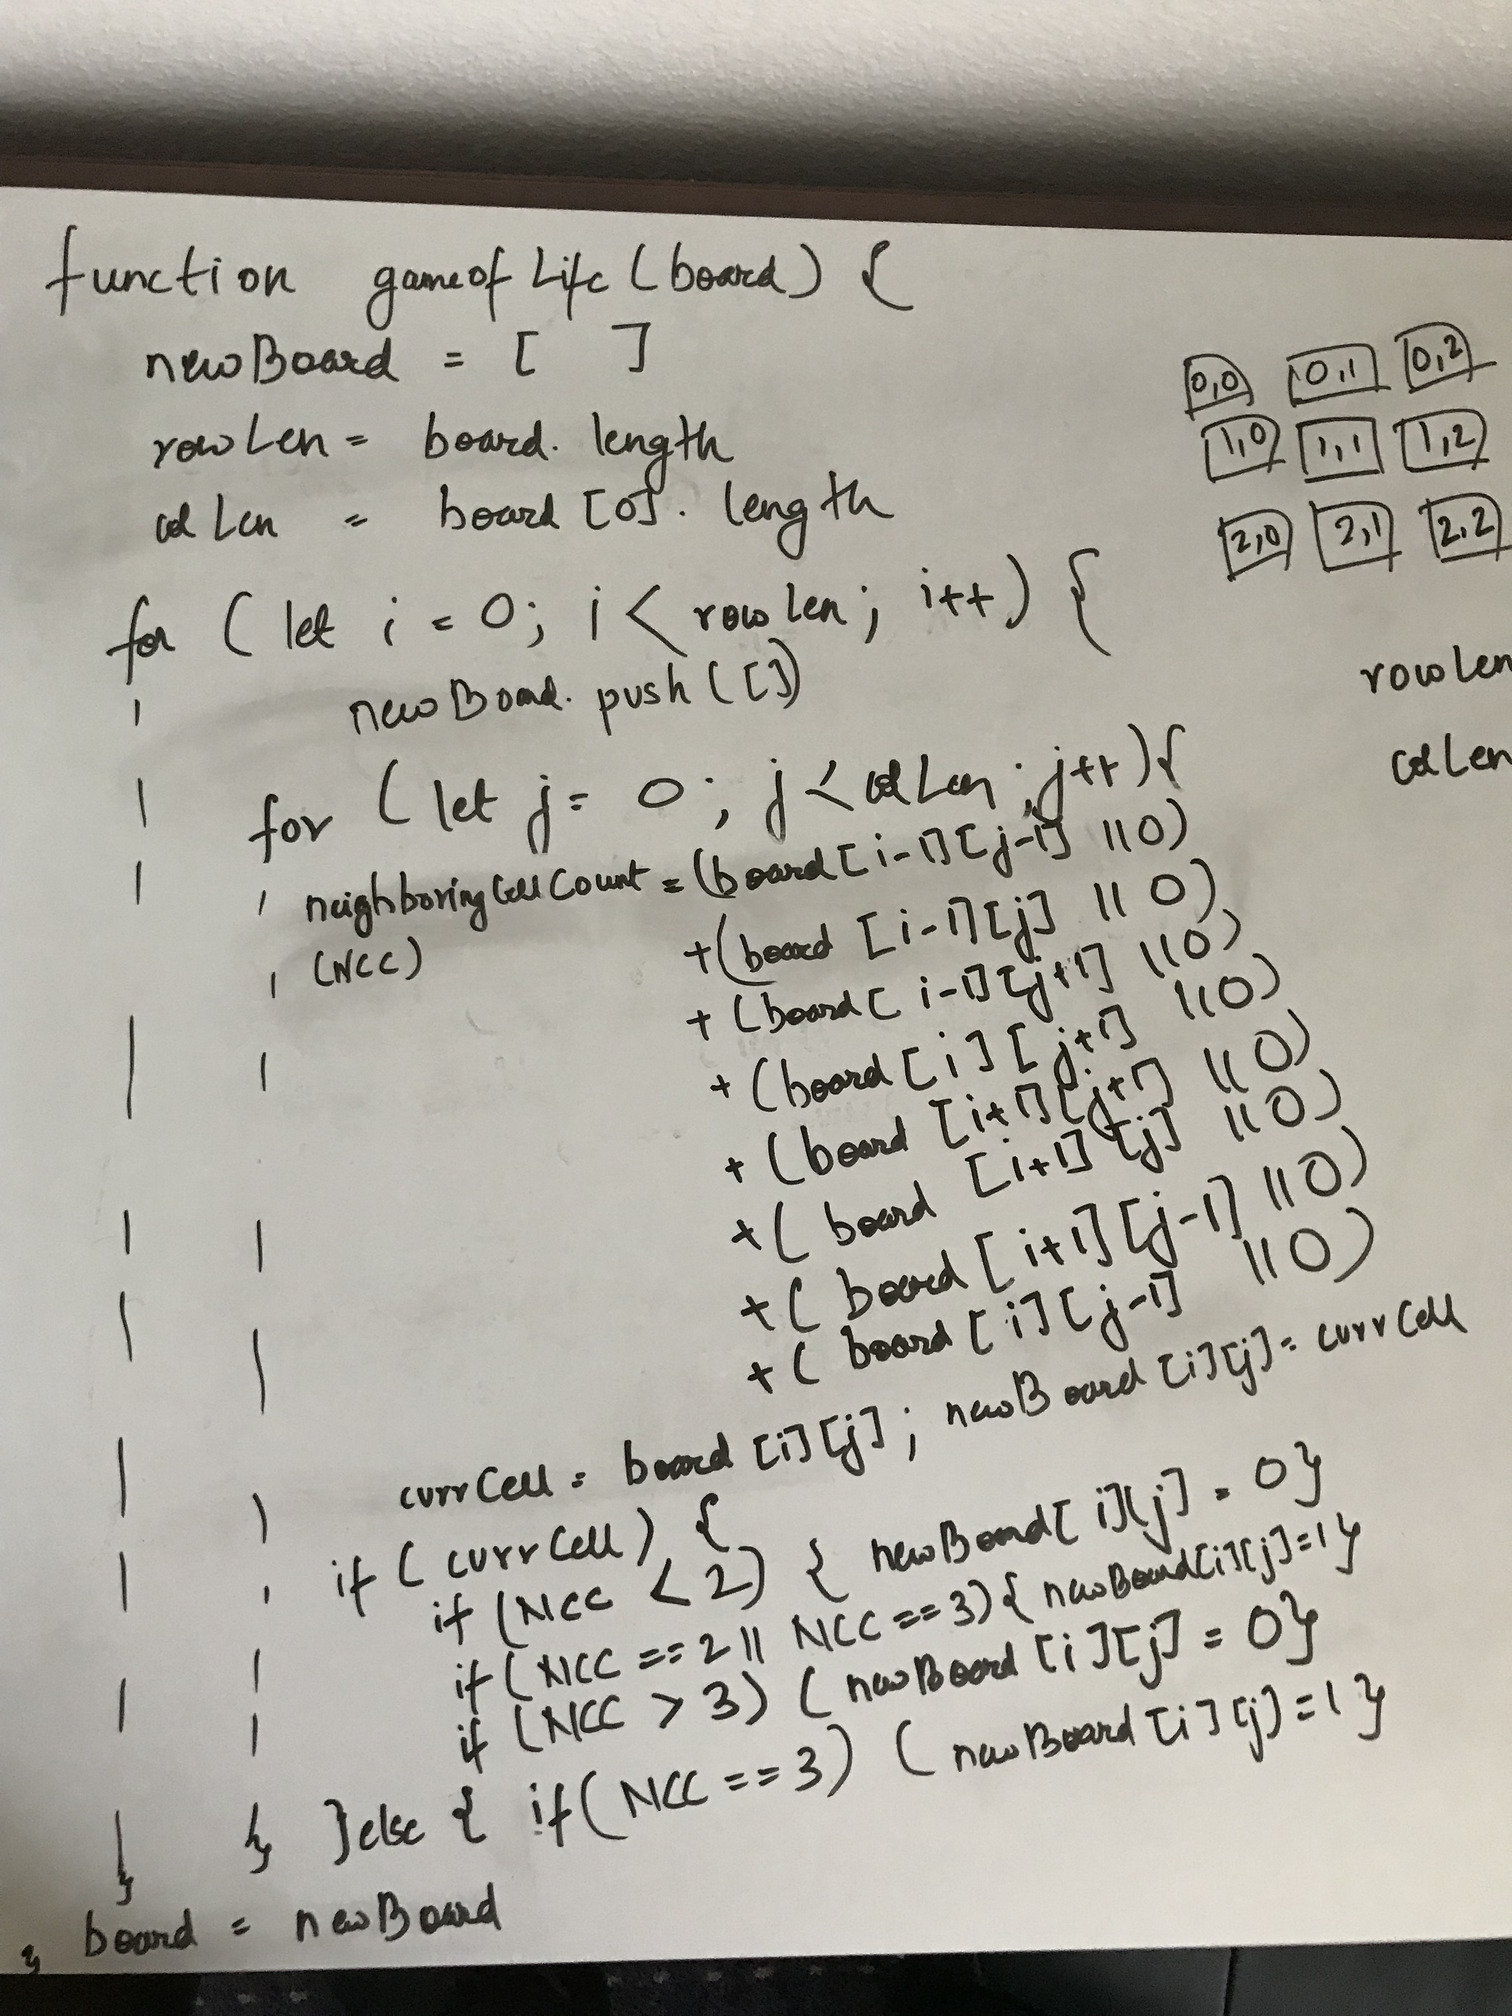 function gameofLife (board) {
newBoard = [ ]
rowLen = board. length
colLen = board [0]. length
0,0 0,1 0,2
1,0 1,1 1,2
2,0 2,1 2,2
for ( let i = 0; i < rowLen; i++) {
newBoard. push ([])
rowLen
colLen
for ( let j = 0; j < colLen; j++){
neighboringCellCount = (board[i-1][j-1] || 0)
(NCC) +(board [i-1][j] || 0)
+ (board[i-1][j+1] || 0)
+ (board [i] [j+1] || 0)
+ (board [i+1][j+1] || 0)
+( board [i+1] [j] || 0)
+( board [i+1][j-1] || 0)
+ ( board [i][j-1] || 0)
currCell = board [i][j]; newBoard [i][j] = currCell
if ( currCell) {
if (NCC < 2) { newBoard[i][j] = 0}
if (NCC == 2 || NCC == 3){ newBoard[i][j]=1}
if (NCC > 3) ( newBoard [i][j] = 0}
} }else { if( NCC == 3) ( newBoard [i][j)=1}
}
board = newBoard
}